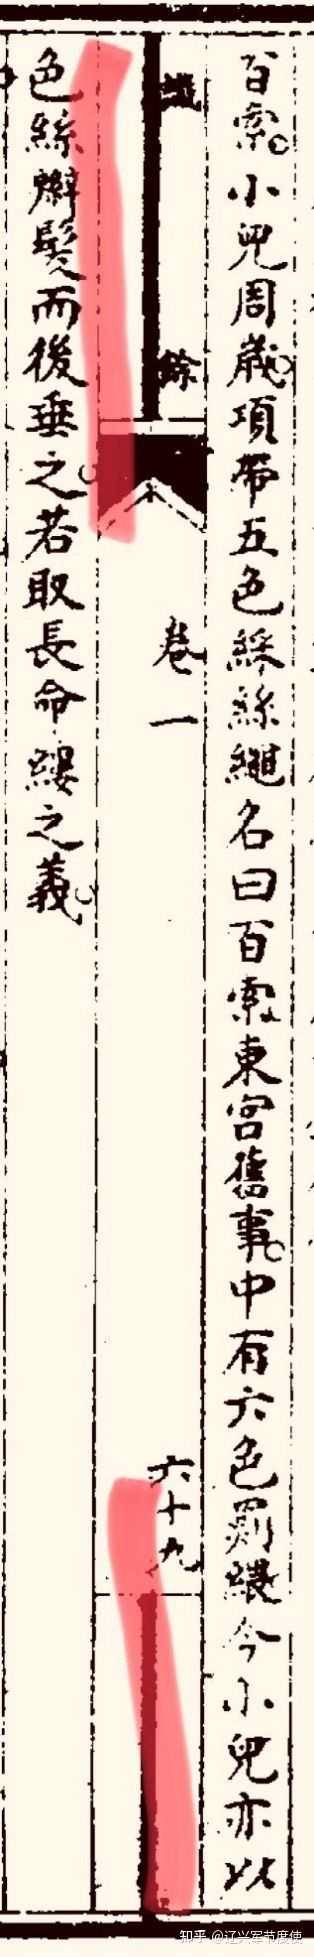 百索。小兒周歲。項帶五色綵絲繩名曰百索東宮舊事。中有六色罽今小兒亦以
識餘
卷一
六十九
色絲辮髮而後垂之。若取長命縷之義。
知乎 @辽兴军节度使